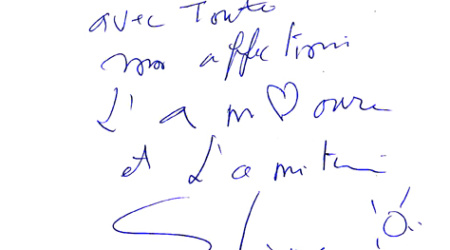 avec Toute
mon affectioni
L'a m♡oure
et L'a mitui